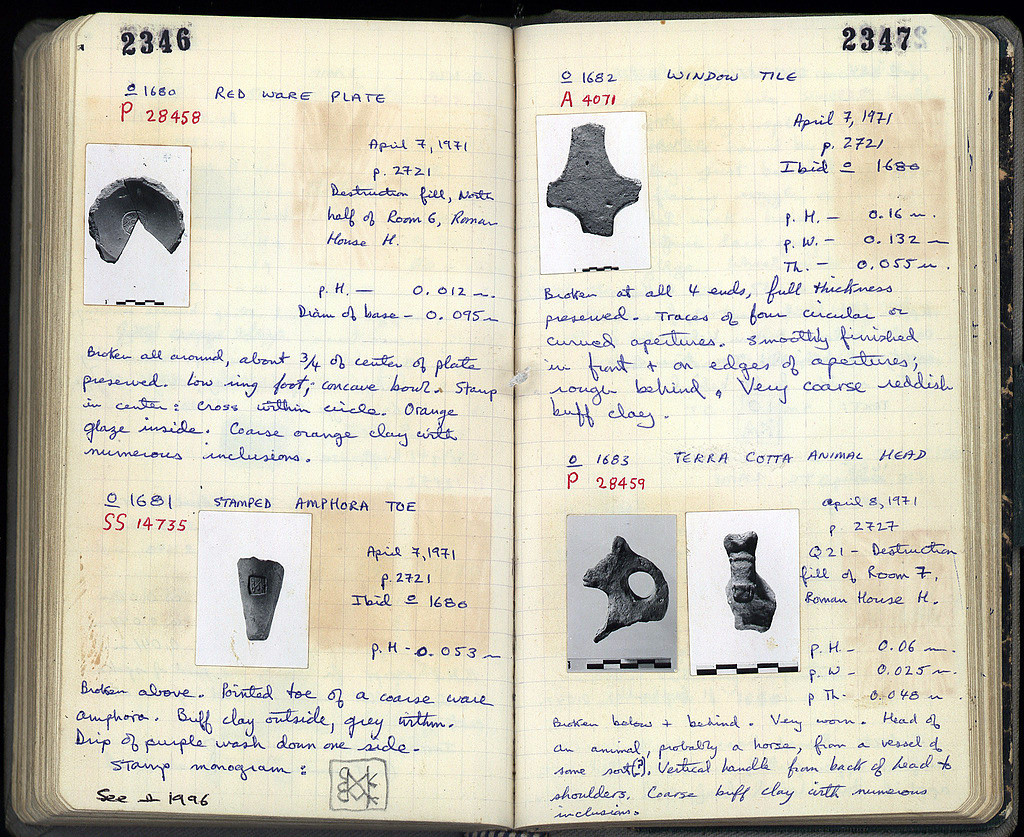 2346
o 1680 RED WARE PLATE
P 28458
April 7, 1971
p. 2721
Destruction fill, North
half of Room 6, Roman
House H.
p. H. — 0.012 m.
Diam of base — 0.095 m
Broken all around, about 3/4 of center of plate
preserved. Low ring foot; concave bowl. Stamp
in center: cross within circle. Orange
glaze inside. Coarse orange clay with
numerous inclusions.
o 1681 STAMPED AMPHORA TOE
SS 14735
April 7, 1971
p. 2721
Ibid o 1680
p. H - 0.053 m
Broken above. Pointed toe of a coarse ware
amphora. Buff clay outside, grey within.
Drip of purple wash down one side.
Stamp monogram:
See 1996
2347
o 1682 WINDOW TILE
A 4071
April 7, 1971
p. 2721
Ibid o 1680
p. H. — 0.16 m.
p. W. — 0.132 m
Th. — 0.055 m.
Broken at all 4 ends, full thickness
preserved. Traces of four circular or
curved apertures. Smoothly finished
in front + on edges of apertures;
rough behind. Very coarse reddish
buff clay.
o 1683 TERRA COTTA ANIMAL HEAD
P 28459
April 8, 1971
p. 2727
Q 21 — Destruction
fill of Room 7,
Roman House H.
p. H. — 0.06 m.
p. W — 0.025 m.
p Th. 0.048 m.
Broken below + behind. Very worn. Head of
an animal, probably a horse, from a vessel of
some sort(?). Vertical handle from back of head to
shoulders. Coarse buff clay with numerous
inclusions.